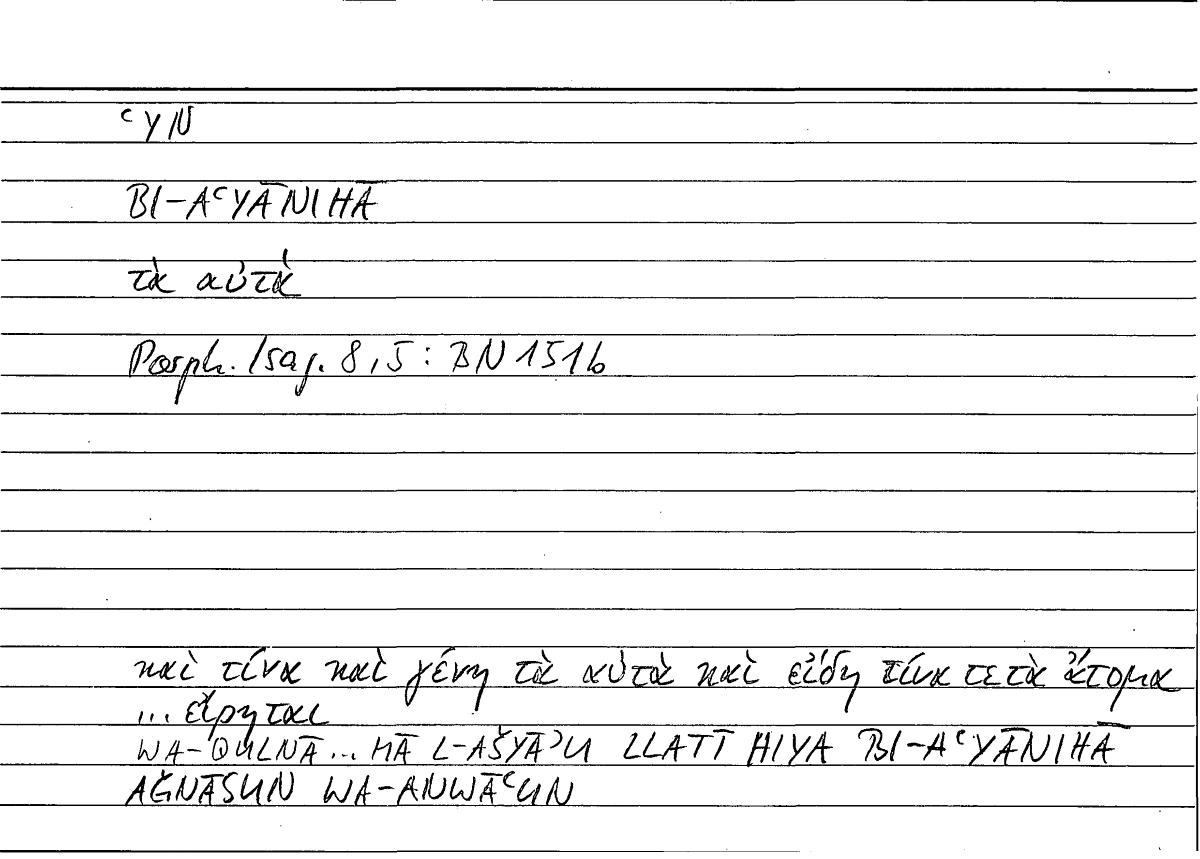 ʿYN
BI-AʿYĀNIHĀ
τὰ αὐτά
Porph. Isag. 8,5: BN 151b
καὶ τίνα καὶ γένη τὰ αὐτὰ καὶ εἴδη τίνα τε τὰ ἄτομα
... εἴρηται
WA-QULNĀ ... MĀ L-AŠYĀʾU LLATĪ HIYA BI-AʿYĀNIHĀ
AǦNĀSUN WA-ANWĀʿUN